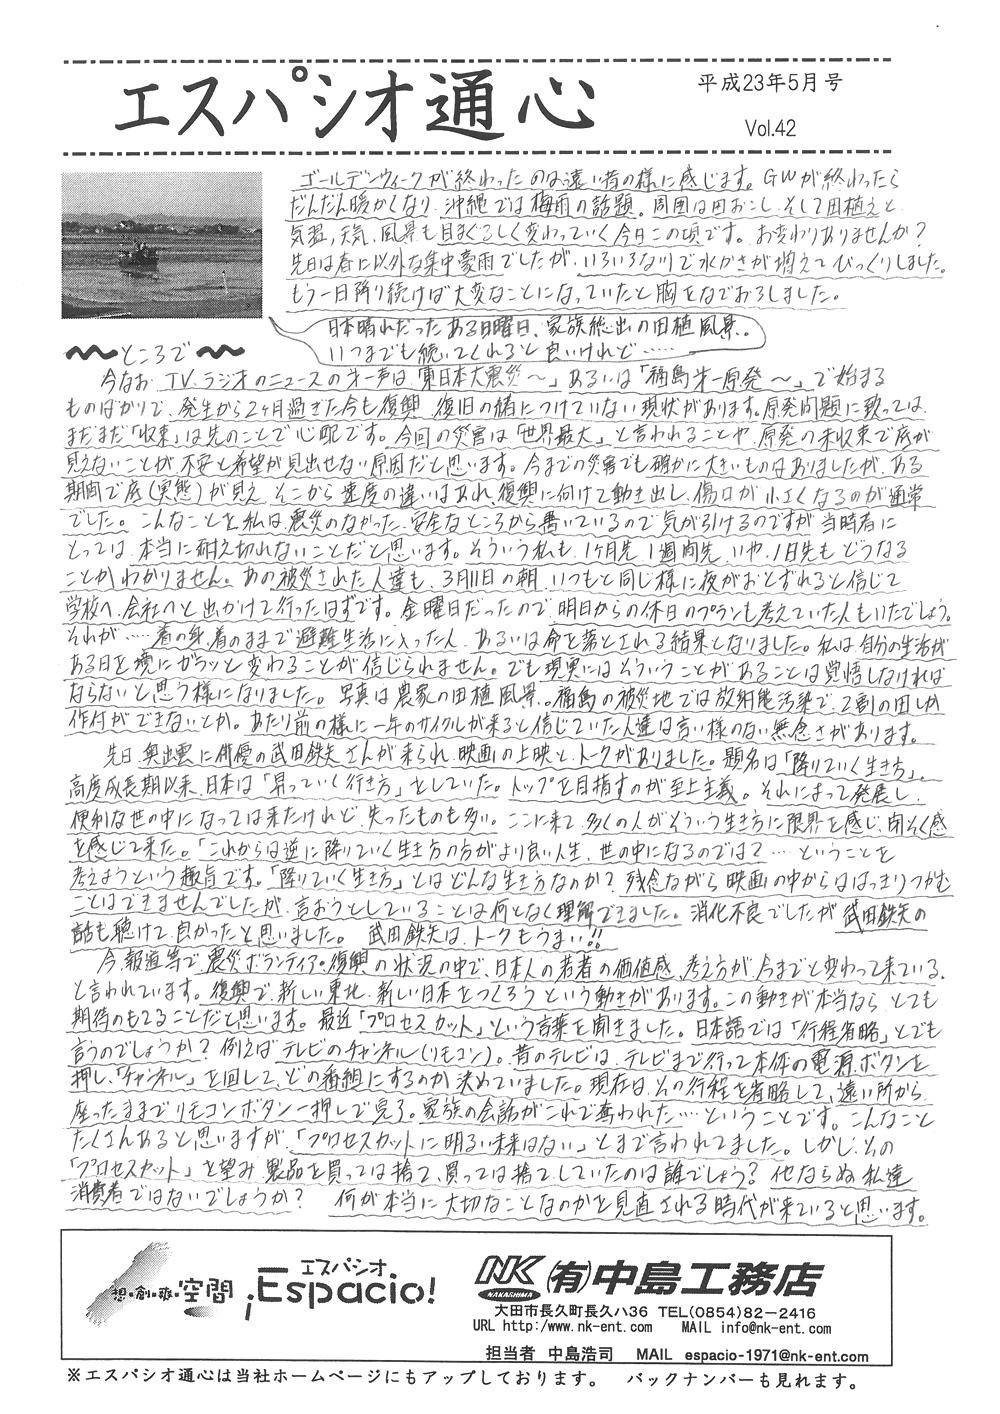 エスパシオ通心
平成23年5月号
Vol.42
ゴールデンウィークが終わったのは遠い昔の様に感じます。GWが終わったら
だんだん暖かくなり、沖縄では梅雨の話題。周囲は田おこし、そして田植えと
気温、天気、風景も目まぐるしく変わっていく今日この頃です。お変わりありませんか?
先日は春には以外な集中豪雨でしたが、いろいろな川で水かさが増えてびっくりしました。
もう一日降り続けば大変なことになっていたと胸をなでおろしました。
日本晴れだったある日曜日、家族総出の田植風景。
いつまでも続いてくれると良いけれど……
ところで
今なお、TV、ラジオのニュースの第一声は「東日本大震災〜」あるいは「福島第一原発〜」で始まる
ものばかりで、発生から2ヶ月過ぎた今も復興、復旧の緒につけていない現状があります。原発問題に致っては、
まだまだ「収束」は先のことで心配です。今回の災害は「世界最大」と言われることや、原発の未収束で底が
見えないことが、不安と希望が見出せない原因だと思います。今までの災害でも確かに大きいものはありましたが、ある
期間で底(実態)が見え、そこから速度の違いはあれ、復興に向けて動き出し、傷口が小さくなるのが通常
でした。こんなことを私は、震災のなかった、安全なところから書いているので気が引けるのですが、当時者に
とっては、本当に耐え切れないことだと思います。そういう私も、1ヶ月先、1週間先、いや、1日先もどうなる
ことかわかりません。あの被災された人達も、3月11日の朝、いつもと同じ様に夜がおとずれると信じて
学校へ、会社へと出かけて行ったはずです。金曜日だったので、明日からの休日のプランも考えていた人もいたでしょう。
それが……着の身、着のままで避難生活に入った人、あるいは命を落とされる結果となりました。私は、自分の生活が
ある日を境にガラッと変わることが信じられません。でも現実にはそういうことがあることは覚悟しなければ
ならないと思う様になりました。写真は農家の田植風景。福島の被災地では放射能汚染で、2割の田しか
作付ができないとか。あたり前の様に一年のサイクルが来ると信じていた人達は言い様のない無念さがあります。
先日、奥出雲に俳優の武田鉄矢さんが来られ、映画の上映と、トークがありました。題名は「降りていく生き方」。
高度成長期以来、日本は「昇っていく行き方」をしていた。トップを目指すのが至上主義。それによって発展し、
便利な世の中になっては来たけれど、失ったものも多い。ここに来て、多くの人がそういう生き方に限界を感じ、閉そく感
を感じて来た。「これからは逆に降りていく生き方の方がより良い人生、世の中になるのでは?…ということを
考えようという趣旨です。「降りていく生き方」とはどんな生き方なのか?残念ながら映画の中からははっきりつかむ
ことはできませんでしたが、言おうとしていることは何となく理解できました。消化不良でしたが、武田鉄矢の
話も聴けて、良かったと思いました。武田鉄矢は、トークもうまい!!
今、報道等で、震災ボランティア・復興の状況の中で、日本人の若者の価値感、考え方が、今までと変わって来ている、
と言われています。復興で、新しい東北、新しい日本をつくろうという動きがあります。この動きが本当ならとても
期待のもてることだと思います。最近「プロセスカット」という言葉を聞きました。日本語では「行程省略」とでも
言うのでしょうか?例えばテレビのチャンネル(リモコン)。昔のテレビは、テレビまで行って本体の電源ボタンを
押し、「チャンネル」を回して、どの番組にするのか決めていました。現在は、その行程を省略して、遠い所から
座ったままでリモコンボタン一押しで完了。家族の会話がこれで奪われた…ということです。こんなこと
たくさんあると思いますが、「プロセスカットに明るい未来はない」とまで言われてました。しかし、その
「プロセスカット」を望み、製品を買っては捨て、買っては捨て、していたのは誰でしょう?他ならぬ私達
消費者ではないでしょうか?何が本当に大切なことなのかを見直される時代が来ていると思います。
想・創・爽・空間
エスパシオ
¡Espacio!
NK
NAKASHIMA
(有)中島工務店
大田市長久町長久ハ36 TEL(0854)82-2416
URL http:/www.nk-ent.com MAIL info@nk-ent.com
担当者 中島浩司 MAIL espacio-1971@nk-ent.com
※エスパシオ通心は当社ホームページにもアップしております。 バックナンバーも見れます。